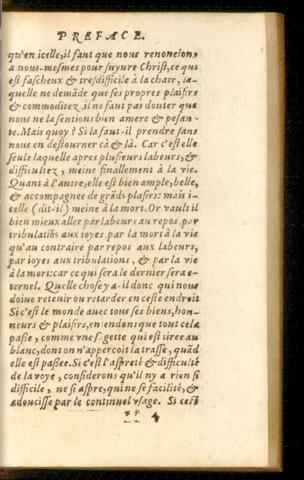 PREFACE.
qu'en icelle, il faut que nous renoncions
à nous-mesmes pour suyure Christ, ce qui
est fascheux & tresdifficile à la chair, la-
quelle ne demãde que ses propres plaisirs
& commoditez, il ne faut pas douter que
nous ne la sentions bien amere & pesan-
te. Mais quoy? Si la faut-il prendre sans
nous en destourner çà & là. Car c'est elle
seule laquelle apres plusieurs labeurs, &
difficultez, meine finallement à la vie.
Quant à l'autre, elle est bien ample, belle,
& accompagnee de grãds plaisirs: mais i-
celle (dit-il) meine à la mort. Or vaut il
bien mieux aller par labeur au repos, par
tribulatiõs aux ioyes, par la mort à la vie
qu'au contraire par repos aux labeurs,
par ioyes aux tribulations, & par la vie
à la mort: car ce qui sera le dernier sera e-
ternel. Quelle chose y a-il donc qui nous
doiue retenir ou retarder en ceste endroit
Si c'est le monde auec tous ses biens, hon-
neurs & plaisirs, entendons que tout cela
passe, comme vne sagette qui est tiree au
blanc, dont on n'apperçoit la trasse, quãd
elle est passee. Si c'est l'aspreté & difficulté
de la voye, considerons qu'il n'y a rien si
difficile, ne si aspre, qui ne se facilite, &
adoucisse par le continuel vsage. Si c'est
4